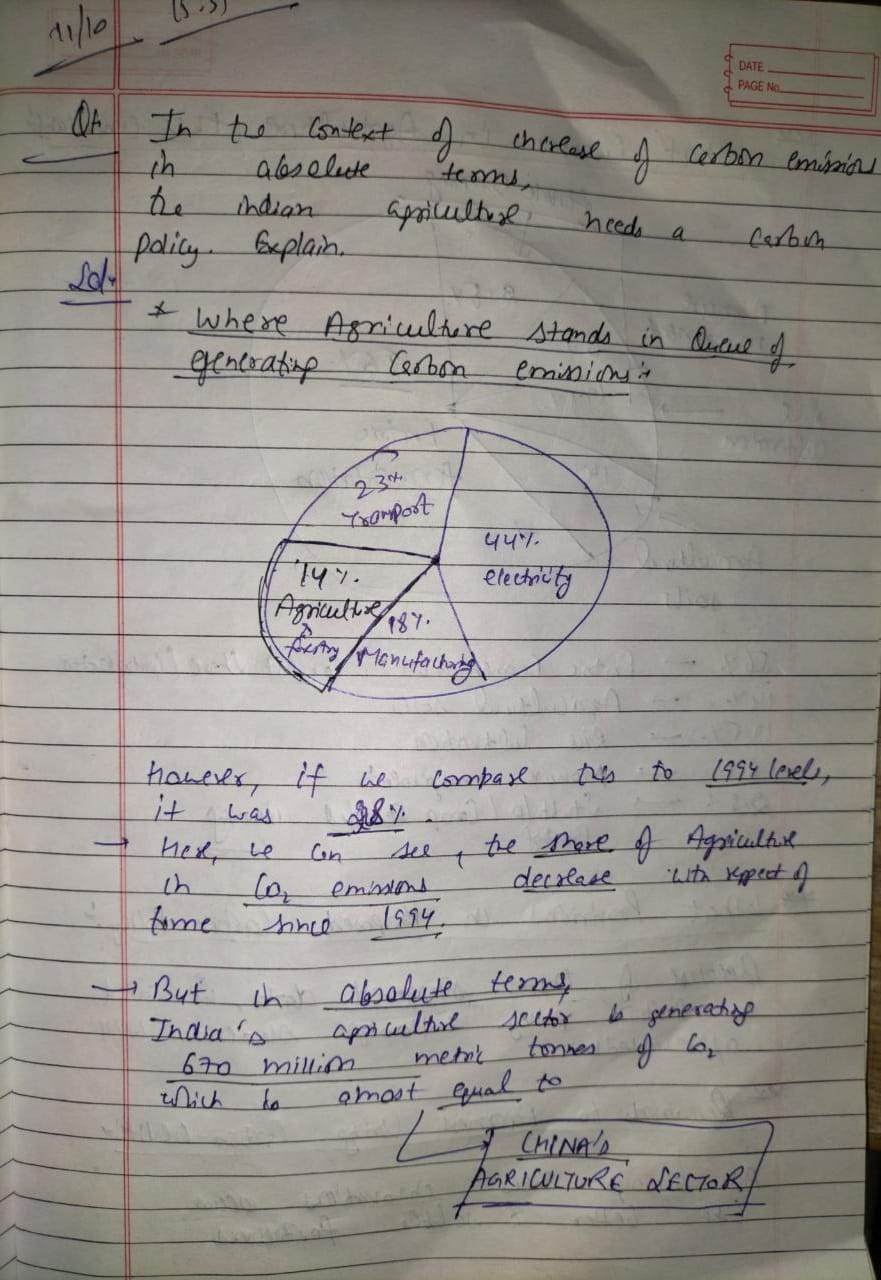 11/10
(5.5)
DATE
PAGE No.
Q1. In the Context of increase of Carbon emission
in absolute terms,
the indian agriculture, needs a Carbon
policy. Explain.
Sol:-
* Where Agriculture stands in Queue of
generating Carbon emissions:-
23%
Transport
44%
electricity
14%
Agriculture
18%
Manufacturing
However, if we compare this to 1994 levels,
it was 28%.
→ Here, we can see, the share of Agriculture
in CO2 emissions decrease with respect of
time since 1994.
→ But in absolute terms,
India's agriculture sector is generating
670 million metric tonnes of CO2
which is amost equal to
CHINA'S
AGRICULTURE SECTOR